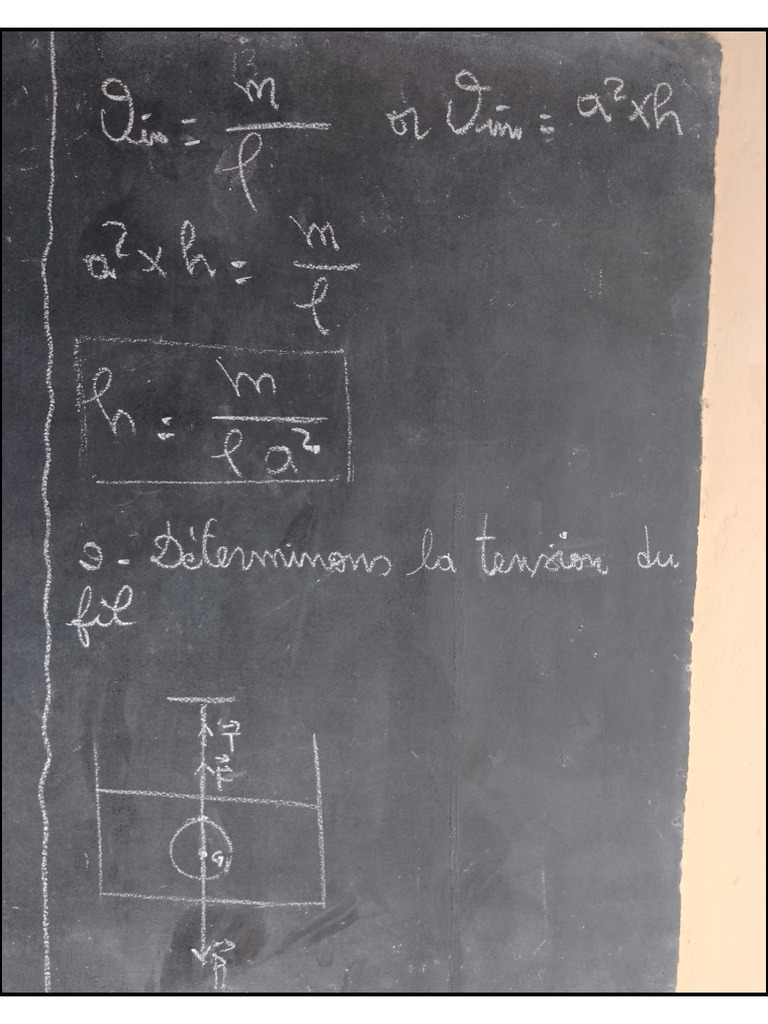 V_im = m/ρ or V_im = a² x h
a² x h = m/ρ
h = m/(ρ a²)
2 - Déterminons la tension du
fil
T
F
G
P